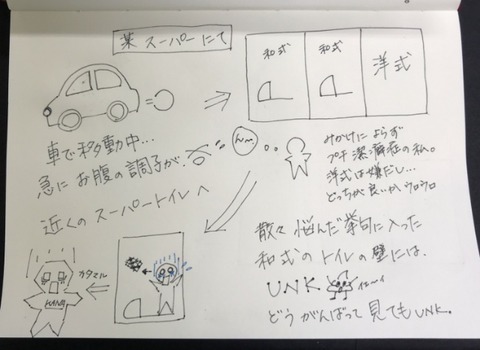 某 スーパーにて
和式
和式
洋式
車で移動中...
急にお腹の調子が...
近くのスーパートイレへ
みかけによらず
プチ潔癖症の私。
洋式は嫌だし...
どっちが良いかウロウロ
散々悩んだ挙句に入った
和式のトイレの壁には、
UNK
イエーイ
どうがんばって見てもUNK。
カタマル